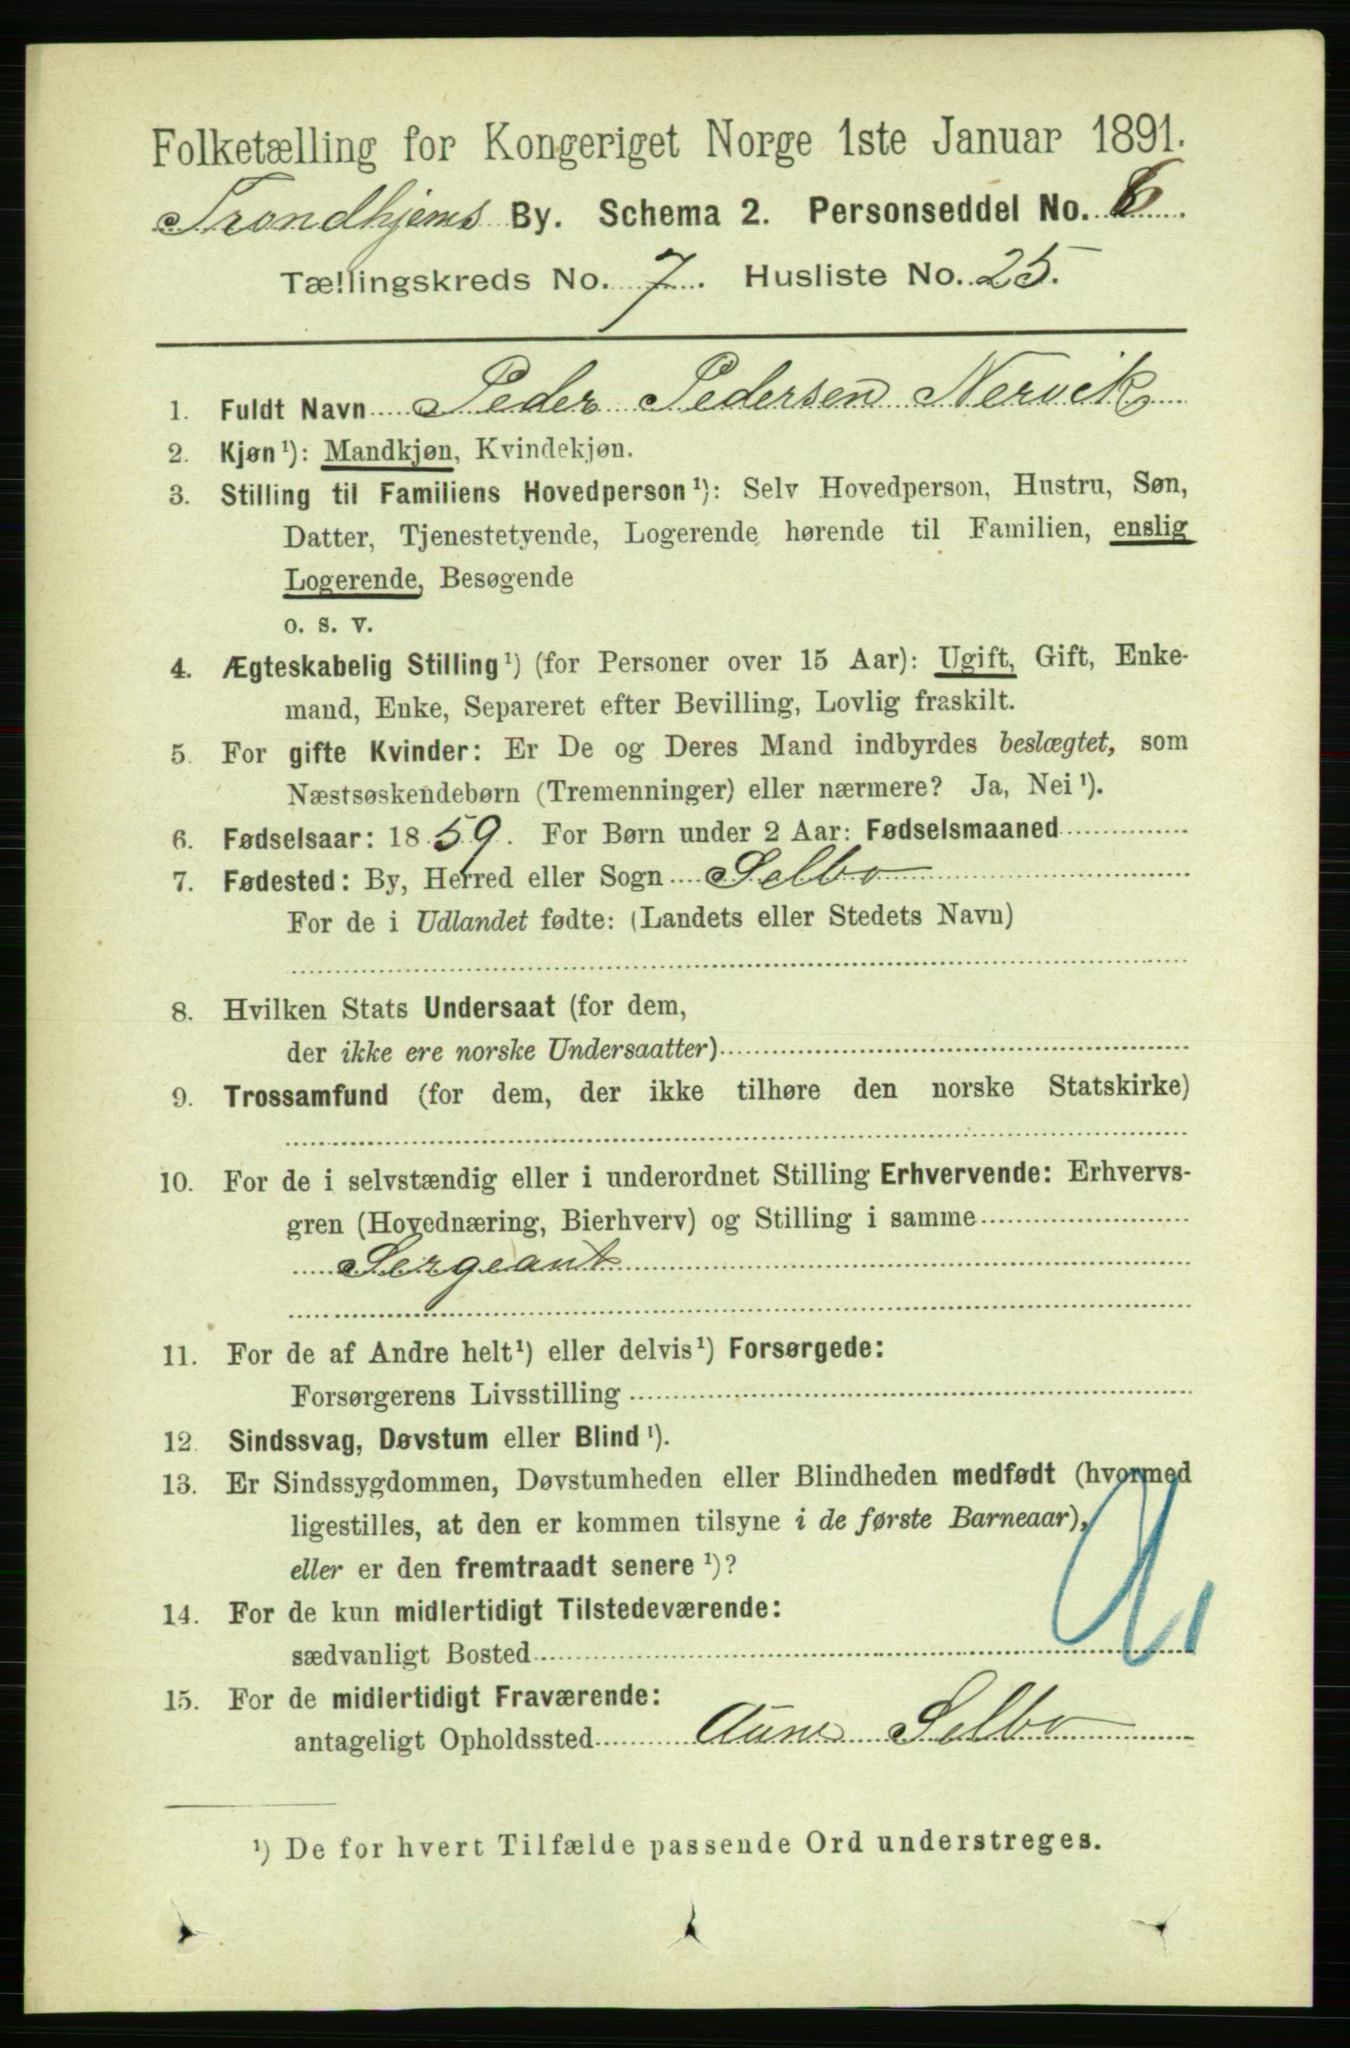 Folketælling for Kongeriget Norge 1ste Januar 1891.
Trondhjems By. Schema 2. Personseddel No. 6
Tællingskreds No. 7. Husliste No. 25.
1. Fuldt Navn Peder Pedersen Nervik
2. Kjøn¹): Mandkjøn, Kvindekjøn.
3. Stilling til Familiens Hovedperson¹): Selv Hovedperson, Hustru, Søn,
Datter, Tjenestetyende, Logerende hørende til Familien, enslig
Logerende, Besøgende
o. s. v.
4. Ægteskabelig Stilling¹) (for Personer over 15 Aar): Ugift, Gift, Enke-
mand, Enke, Separeret efter Bevilling, Lovlig fraskilt.
5. For gifte Kvinder: Er De og Deres Mand indbyrdes beslægtet, som
Næstsøskendebørn (Tremenninger) eller nærmere? Ja, Nei¹).
6. Fødselsaar: 1859. For Børn under 2 Aar: Fødselsmaaned
7. Fødested: By, Herred eller Sogn Selbo
For de i Udlandet fødte: (Landets eller Stedets Navn)
8. Hvilken Stats Undersaat (for dem,
der ikke ere norske Undersaatter)
9. Trossamfund (for dem, der ikke tilhøre den norske Statskirke)
10. For de i selvstændig eller i underordnet Stilling Erhvervende: Erhvervs-
gren (Hovednæring, Bierhverv) og Stilling i samme
Sergeant
11. For de af Andre helt¹) eller delvis¹) Forsørgede:
Forsørgerens Livsstilling
12. Sindssvag, Døvstum eller Blind¹).
13. Er Sindssygdommen, Døvstumheden eller Blindheden medfødt (hvormed
ligestilles, at den er kommen tilsyne i de første Barneaar),
eller er den fremtraadt senere¹)?
14. For de kun midlertidigt Tilstedeværende:
sædvanligt Bosted
15. For de midlertidigt Fraværende:
antageligt Opholdssted Aune Selbo
¹) De for hvert Tilfælde passende Ord understreges.